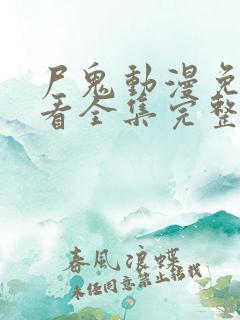 尸鬼動漫免
看全集完整
春風浪蝶
未经同意禁止转载